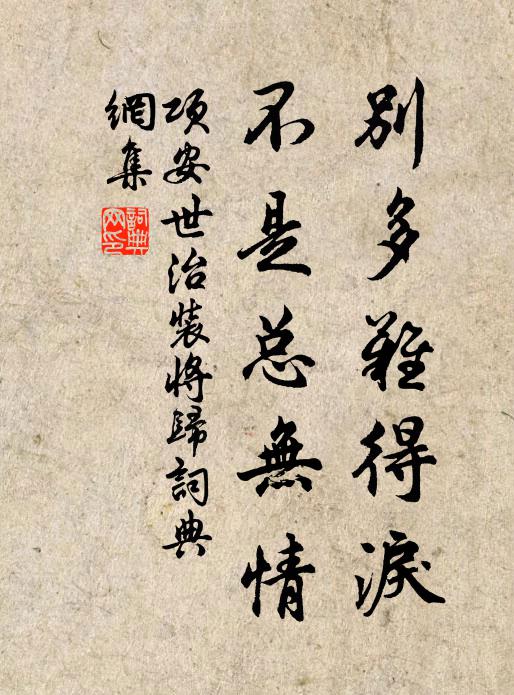 別多難得淚
不是总無情
项安世治裝將歸詞典
網集
詞典網印